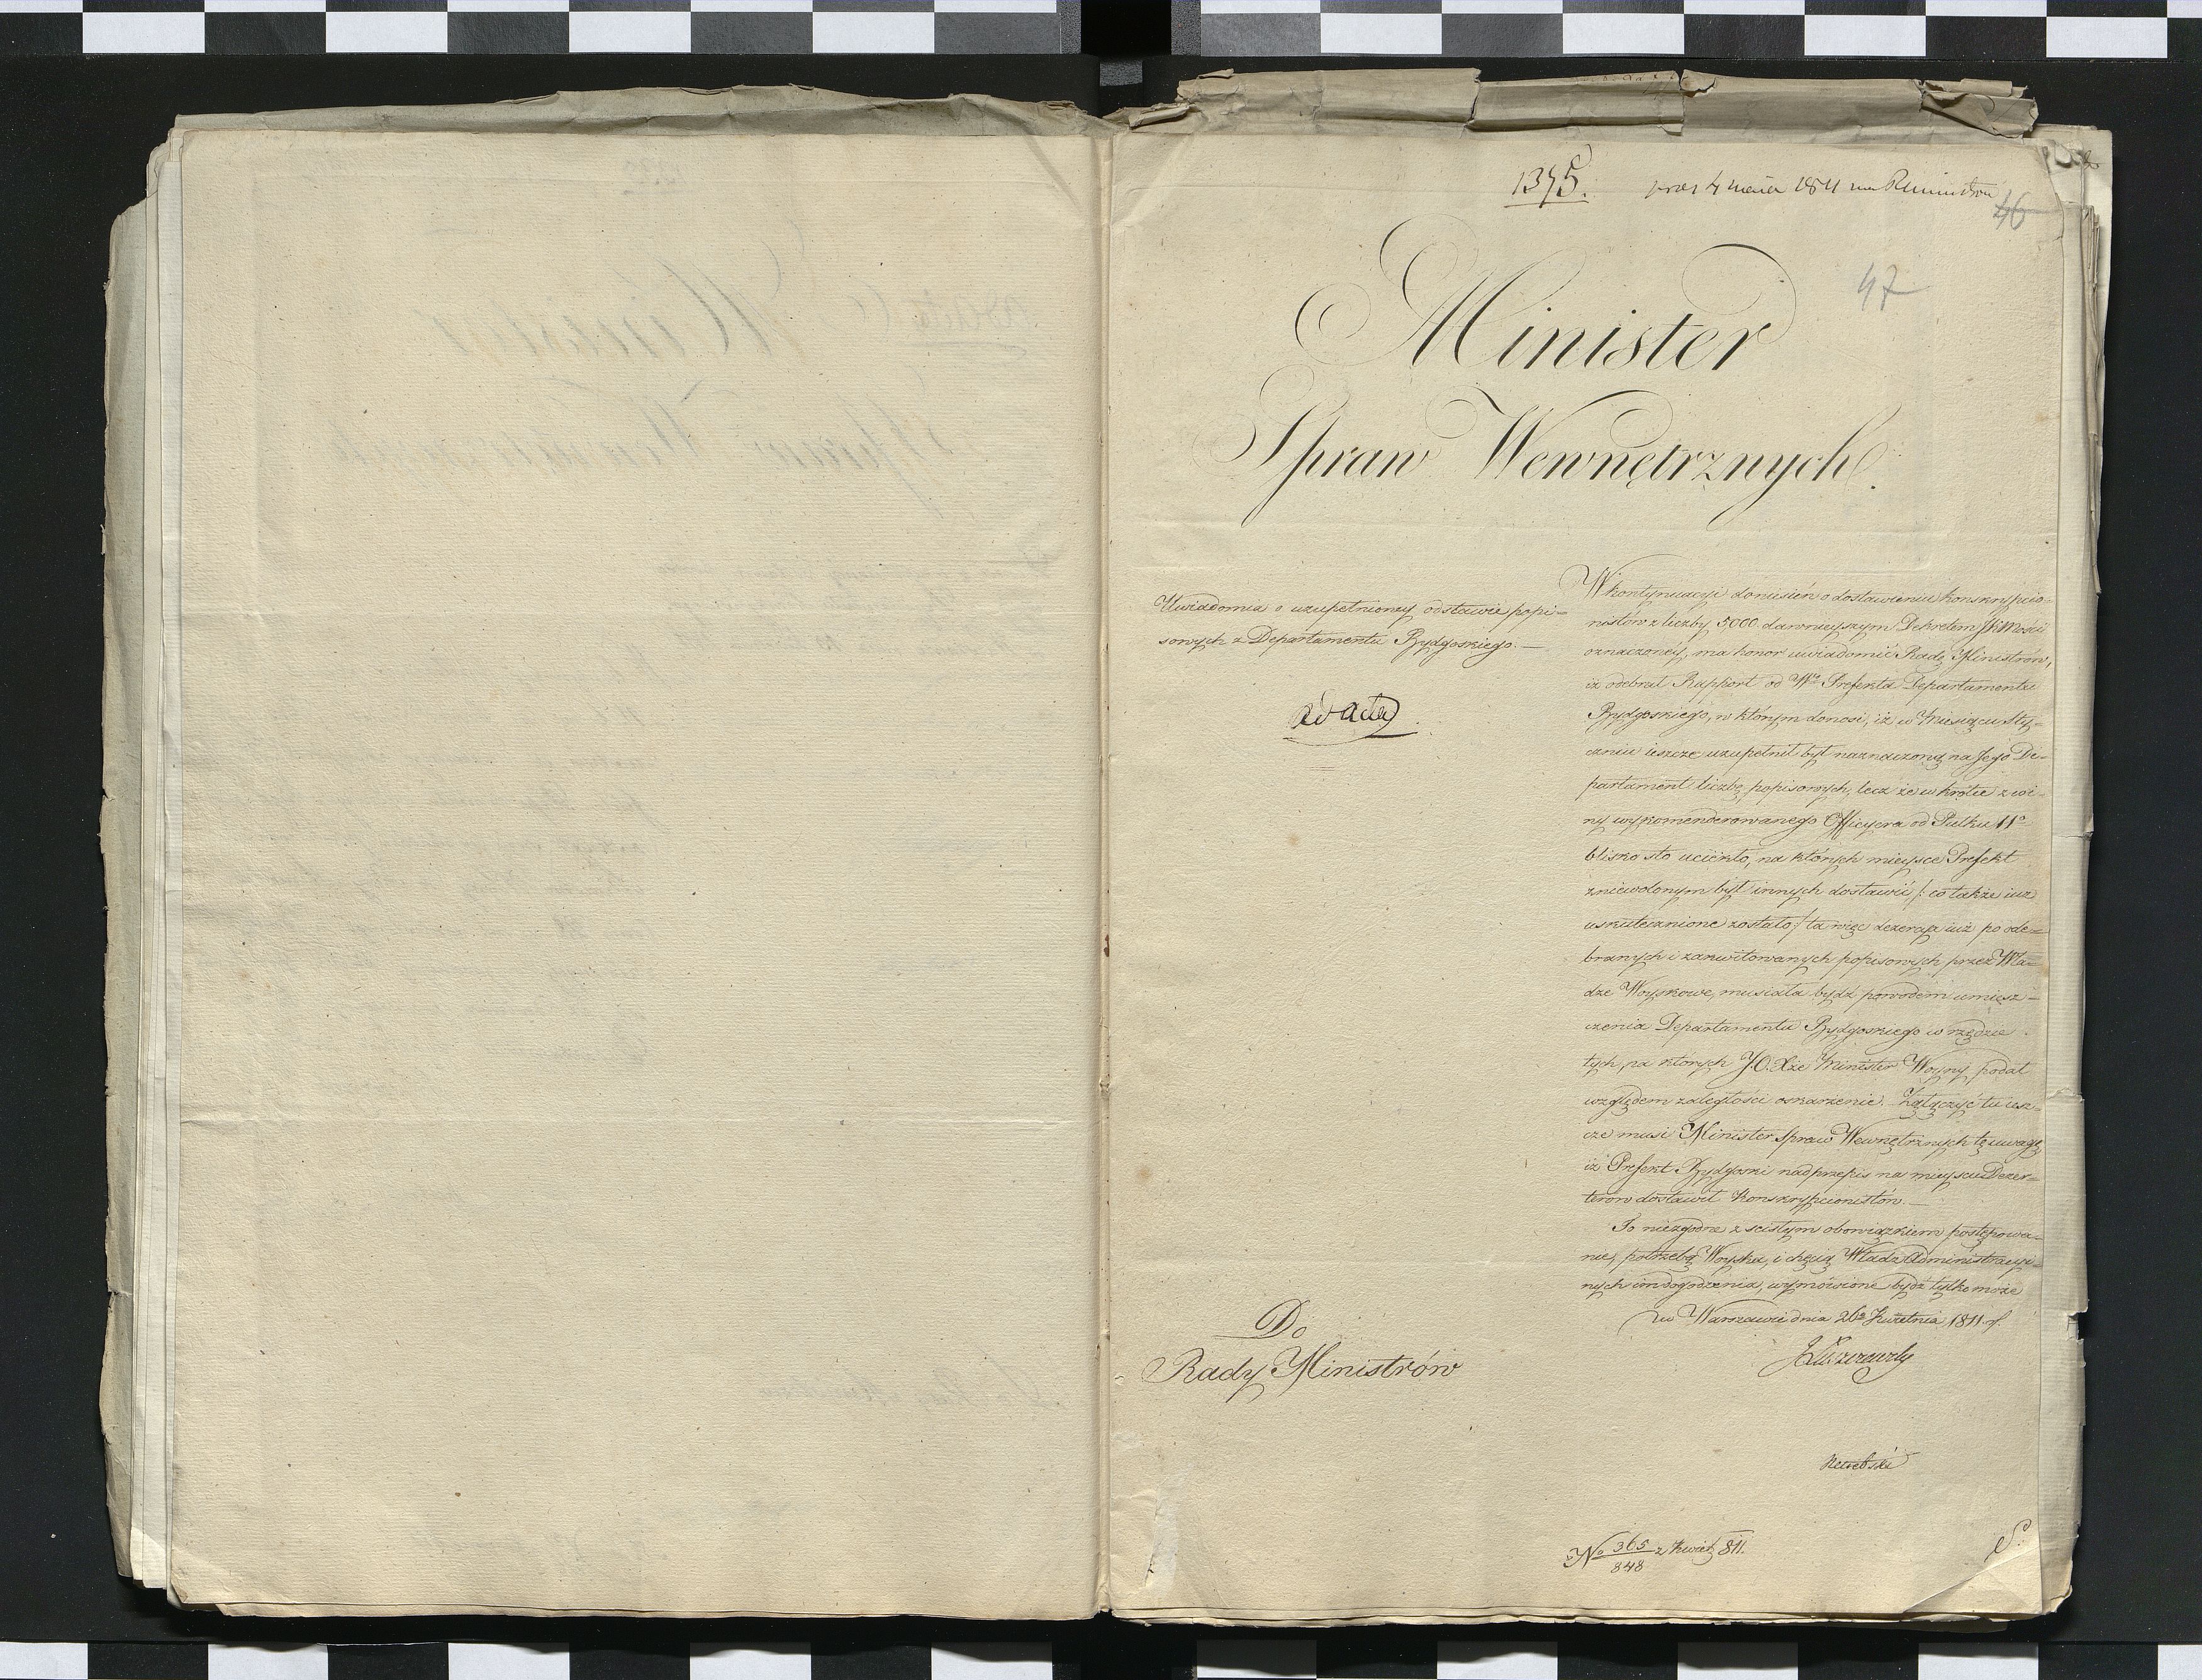 1375.
4 maia 1811
46
47
Minister
Spraw Wewnętrznych.
Uwiadomia o uzupełnioney odstawie popi=
sowych z Departamentu Bydgoskiego.—
ad acta
W kontynuacyi doniesień o dostawieniu konskrypcio=
nistów z liczby 5000 dawnieyszym Dekretem JKMości
oznaczoney, ma honor uwiadomić Radę Ministrów,
iż odebrał Rapport od Wgo Prefekta Departamentu
Bydgoskiego, w którym donosi, iż w Miesiącu Sty=
czniu ieszcze uzupełnił był naznaczoną na Jego De=
partament liczbę popisowych, lecz że wkrótce z wi=
ny wykomenderowanego Officyera od Pułku 11o
blisko sto uciekło, na których mieysce Prefekt
zniewolonym był innych dostawić /: co także iuż
uskutecznione zostało :/ ta więc dezercya iuż po ode=
branych i zakwitowanych popisowych przez Wła=
dze Woyskowe, musiała bydź powodem umiesz=
czenia Departamentu Bydgoskiego w rzędzie
tych, na których J.O. Xże Minister Woyny podał
względem zaległości oskarżenie. Załączyć tu iesz=
cze musi Minister Spraw Wewnętrznych tę uwagę,
iż Prefekt Bydgoski nad przepis na mieysce Dezer=
terów dostawił Konskrypcionistów.—
To niezgodne z ścisłym obowiązkiem postępowa=
nie, potrzebą Woyska, i chęcią Władz Administracyi=
nych im dogodzenia, wymówione bydź tylko może
w Warszawie dnia 26o Kwietnia 1811 r.
Do
Rady Ministrów
No 365/848 z Kwiet. 811.